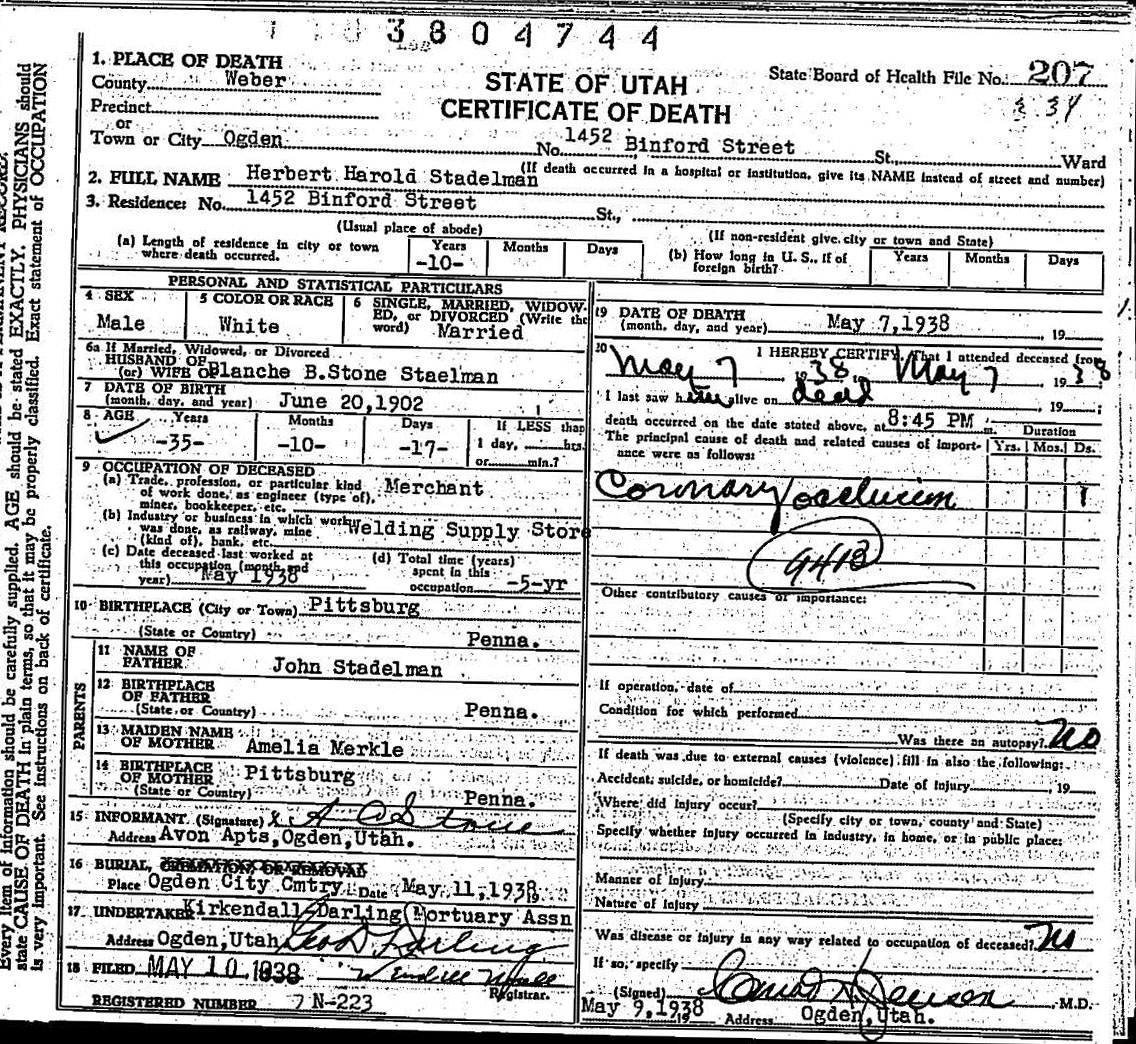 3804744
1. PLACE OF DEATH
County Weber
Precinct
or
Town or City Ogden
STATE OF UTAH
CERTIFICATE OF DEATH
State Board of Health File No. 207
3 34
No. 1452 Binford Street St., Ward
(If death occurred in a hospital or institution, give its NAME instead of street and number)
2. FULL NAME Herbert Harold Stadelman
3. Residence: No. 1452 Binford Street St.,
(Usual place of abode)
(If non-resident give city or town and State)
(a) Length of residence in city or town where death occurred.
Years Months Days
-10-
(b) How long in U. S., if of foreign birth?
Years Months Days
PERSONAL AND STATISTICAL PARTICULARS
4 SEX
Male
5 COLOR OR RACE
White
6 SINGLE, MARRIED, WIDOW-
ED, or DIVORCED (Write the
word) Married
6a If Married, Widowed, or Divorced
HUSBAND OF
(or) WIFE OF Blanche B.Stone Staelman
7 DATE OF BIRTH
(month, day, and year) June 20,1902
8 AGE Years Months Days If LESS than
-35- -10- -17- 1 day, hrs.
or min.?
9 OCCUPATION OF DECEASED
(a) Trade, profession, or particular kind
of work done, as engineer (type of), Merchant
miner, bookkeeper, etc.
(b) Industry or business in which work
was done, as railway, mine Welding Supply Store
(kind of), bank, etc.
(c) Date deceased last worked at
this occupation (month and
year) May 1938
(d) Total time (years)
spent in this
occupation -5-yr
10 BIRTHPLACE (City or Town) Pittsburg
(State or Country) Penna.
PARENTS
11 NAME OF
FATHER John Stadelman
12 BIRTHPLACE
OF FATHER
(State or Country) Penna.
13 MAIDEN NAME
OF MOTHER Amelia Merkle
14 BIRTHPLACE
OF MOTHER Pittsburg
(State or Country) Penna.
15 INFORMANT (Signature) x A O Stone
Address Avon Apts,Ogden,Utah.
16 BURIAL, CREMATION, OR REMOVAL
Place Ogden City Cmtry Date May 11,1938 19
17 UNDERTAKER Kirkendall Darling Mortuary Assn
Address Ogden,Utah Geo D Darling
18 FILED MAY 10 1938
Registrar.
REGISTERED NUMBER 7 N-223
19 DATE OF DEATH
(month, day, and year) May 7,1938 19
20 I HEREBY CERTIFY, That I attended deceased from
May 7 1938, May 7 1938
I last saw him alive on dead, 19 ;
death occurred on the date stated above, at 8:45 PM m.
Duration
The principal cause of death and related causes of import-
ance were as follows:
Yrs. Mos. Ds.
Coronary occlusion 1
94B
Other contributory causes of importance:
If operation, date of
Condition for which performed
Was there an autopsy? No
If death was due to external causes (violence) fill in also the following:
Accident, suicide, or homicide? Date of Injury , 19
Where did injury occur?
(Specify city or town, county and State)
Specify whether injury occurred in industry, in home, or in public place:
Manner of Injury
Nature of Injury
Was disease or injury in any way related to occupation of deceased? No
If so, specify
(Signed) M.D.
May 9,1938 19 Address Ogden, Utah.
Every item of information should be carefully supplied. AGE should be stated EXACTLY. PHYSICIANS should
state CAUSE OF DEATH in plain terms, so that it may be properly classified. Exact statement of OCCUPATION
is very important. See instructions on back of certificate.